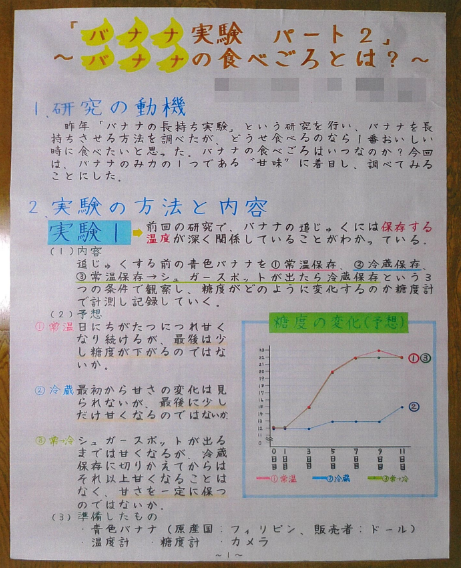 「バナナ実験 パート2」
～バナナの食べごろとは?～
1.研究の動機
昨年「バナナの長持ち実験」という研究を行い、バナナを長
持ちさせる方法を調べたが、どうせ食べるのなら1番おいしい
時に食べたいと思った。バナナの食べごろはいつなのか?今回
は、バナナのみ力の1つである"甘味"に着目し、調べてみる
ことにした。
2.実験の方法と内容
実験1 ➡ 前回の研究で、バナナの追じゅくには保存する
温度が深く関係していることがわかっている。
(1)内容
追じゅくする前の青色バナナを①常温保存、②冷蔵保存、
③常温保存→シュガースポットが出たら冷蔵保存という3
つの条件で観察し、糖度がどのように変化するのか糖度計
で計測し記録していく。
(2)予想
①常温 日にちがたつにつれ甘く
なり続けるが、最後は少
し糖度が下がるのではな
いか。
②冷蔵 最初から甘さの変化は見
られないが、最後に少し
だけ甘くなるのではないか
③常→冷 シュガースポットが出る
までは甘くなるが、冷蔵
保存に切りかえてからは
それ以上甘くなることは
なく、甘さを一定に保つ
のではないか。
糖度の変化(予想)
①③
②
0日目 1日目 3日目 5日目 7日目 9日目 11日目
①常温 ②冷蔵 ③常→冷
(3)準備したもの
・青色バナナ(原産国;フィリピン、販売者;ドール)
・温度計 ・糖度計 ・カメラ
～1～